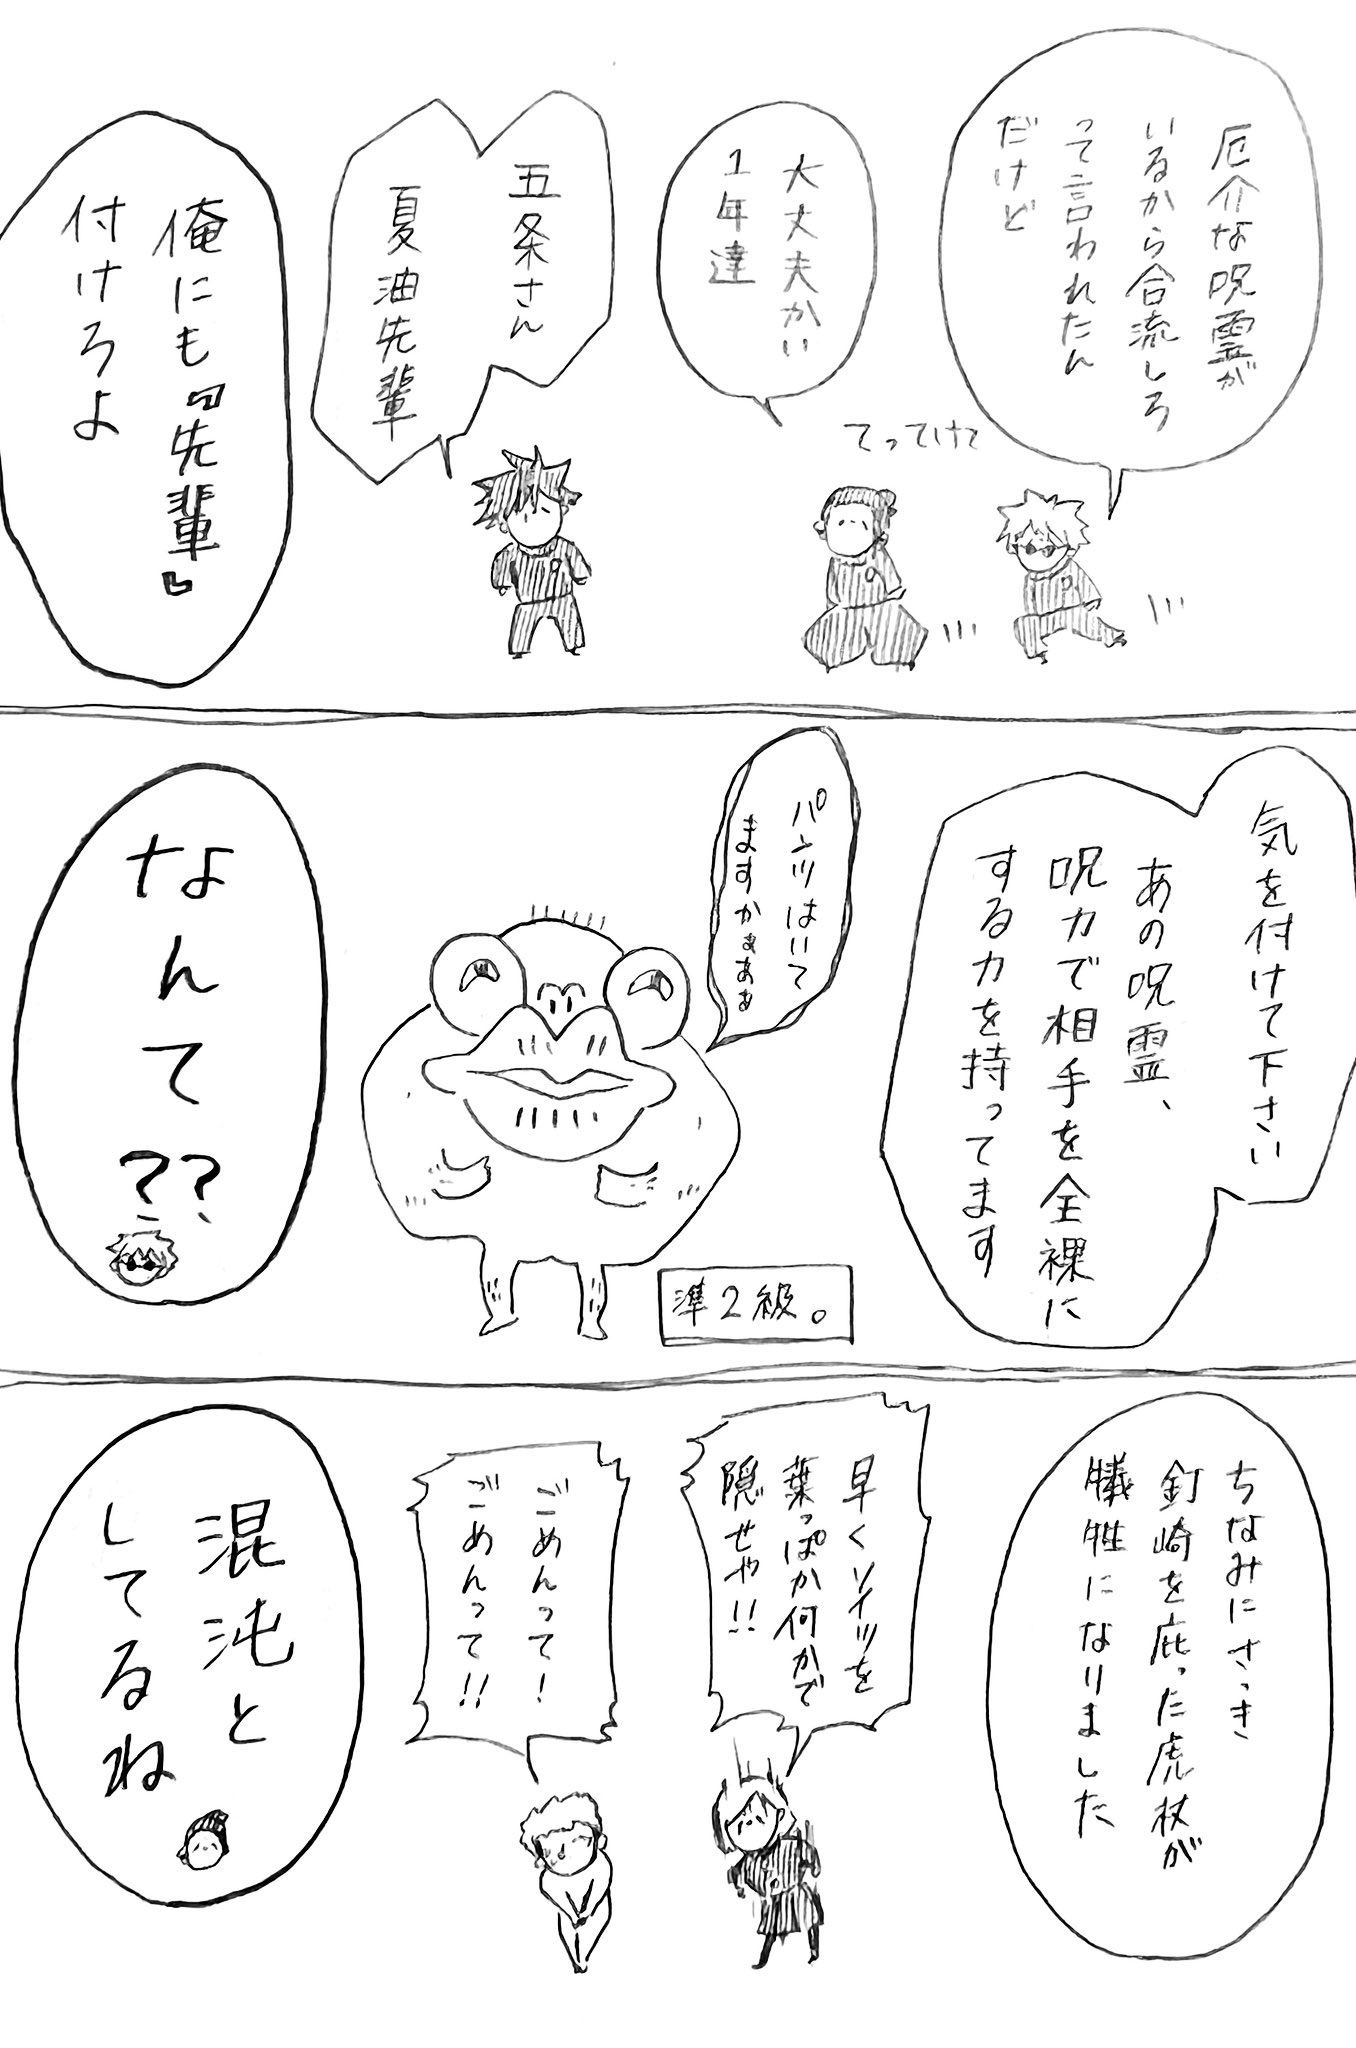 厄介な呪霊が
いるから合流しろ
って言われたん
だけど
てってけて
大丈夫かい
1年達
五条さん
夏油先輩
俺にも『先輩』
付けろよ
気を付けて下さい
あの呪霊、
呪力で相手を全裸に
する力を持ってます
パンツはいて
ますかぁぁぁ
準2級。
なんて??
ちなみにさっき
釘崎を庇った虎杖が
犠牲になりました
早くソイツを
葉っぱか何かで
隠せや!!
ごめんって!
ごめんって!!
混沌と
してるね